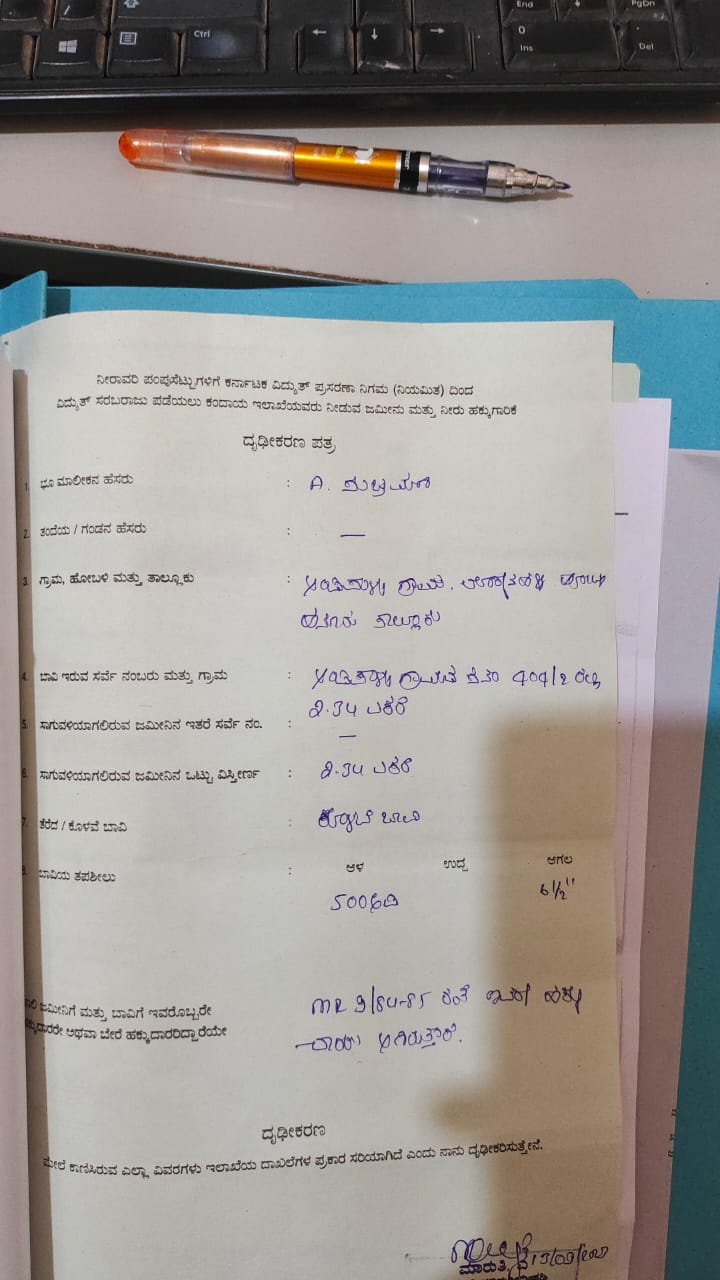 End
PgDn
Ctrl
0
Ins
.
Del
ನೀರಾವರಿ ಪಂಪುಸೆಟ್ಟುಗಳಿಗೆ ಕರ್ನಾಟಕ ವಿದ್ಯುತ್ ಪ್ರಸರಣಾ ನಿಗಮ (ನಿಯಮಿತ) ದಿಂದ
ವಿದ್ಯುತ್ ಸರಬರಾಜು ಪಡೆಯಲು ಕಂದಾಯ ಇಲಾಖೆಯವರು ನೀಡುವ ಜಮೀನು ಮತ್ತು ನೀರು ಹಕ್ಕುಗಾರಿಕೆ
ದೃಢೀಕರಣ ಪತ್ರ
1. ಭೂ ಮಾಲೀಕನ ಹೆಸರು : A.
2. ತಂದೆಯ / ಗಂಡನ ಹೆಸರು : —
3. ಗ್ರಾಮ, ಹೋಬಳಿ ಮತ್ತು ತಾಲ್ಲೂಕು : ಗ್ರಾಮ.
ತಾಲ್ಲೂಕು
4. ಬಾವಿ ಇರುವ ಸರ್ವೆ ನಂಬರು ಮತ್ತು ಗ್ರಾಮ : 404/2
2.34 ಎಕರೆ
5. ಸಾಗುವಳಿಯಾಗಲಿರುವ ಜಮೀನಿನ ಇತರೆ ಸರ್ವೆ ನಂ. : —
6. ಸಾಗುವಳಿಯಾಗಲಿರುವ ಜಮೀನಿನ ಒಟ್ಟು ವಿಸ್ತೀರ್ಣ : 2.34 ಎಕರೆ
7. ತೆರೆದ / ಕೊಳವೆ ಬಾವಿ : ಕೊಳವೆ ಬಾವಿ
8. ಬಾವಿಯ ತಪಶೀಲು : ಆಳ ಉದ್ದ ಅಗಲ
500ಅಡಿ 6 1/2"
ಜಮೀನಿಗೆ ಮತ್ತು ಬಾವಿಗೆ ಇವರೊಬ್ಬರೇ MR 9/84-85 ರಂತೆ ಇವರೆ ಹಕ್ಕು
ಹಕ್ಕುದಾರರೇ ಅಥವಾ ಬೇರೆ ಹಕ್ಕುದಾರರಿದ್ದಾರೆಯೇ ಆಗಿರುತ್ತಾರೆ.
ದೃಢೀಕರಣ
ಮೇಲೆ ಕಾಣಿಸಿರುವ ಎಲ್ಲಾ ವಿವರಗಳು ಇಲಾಖೆಯ ದಾಖಲೆಗಳ ಪ್ರಕಾರ ಸರಿಯಾಗಿದೆ ಎಂದು ನಾನು ದೃಢೀಕರಿಸುತ್ತೇನೆ.
ಮಾರುತಿ.